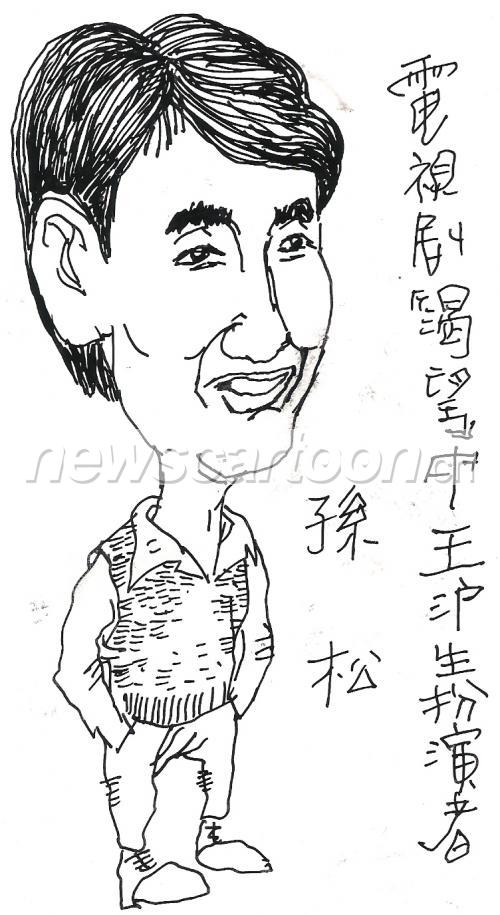 電視剧渴望中王沪生扮演者
孫松
newscartoon.cn